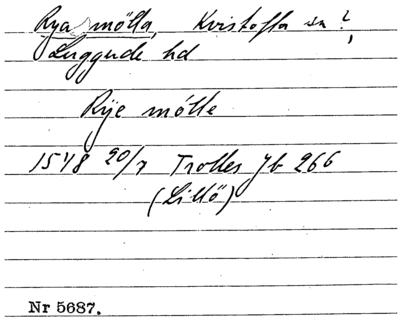 Rya mölla, Kvistofta sn?,
Luggude hd
Rÿe mölle
1548 20/7 Trolles Jb 266
(Lillö)
Nr 5687.